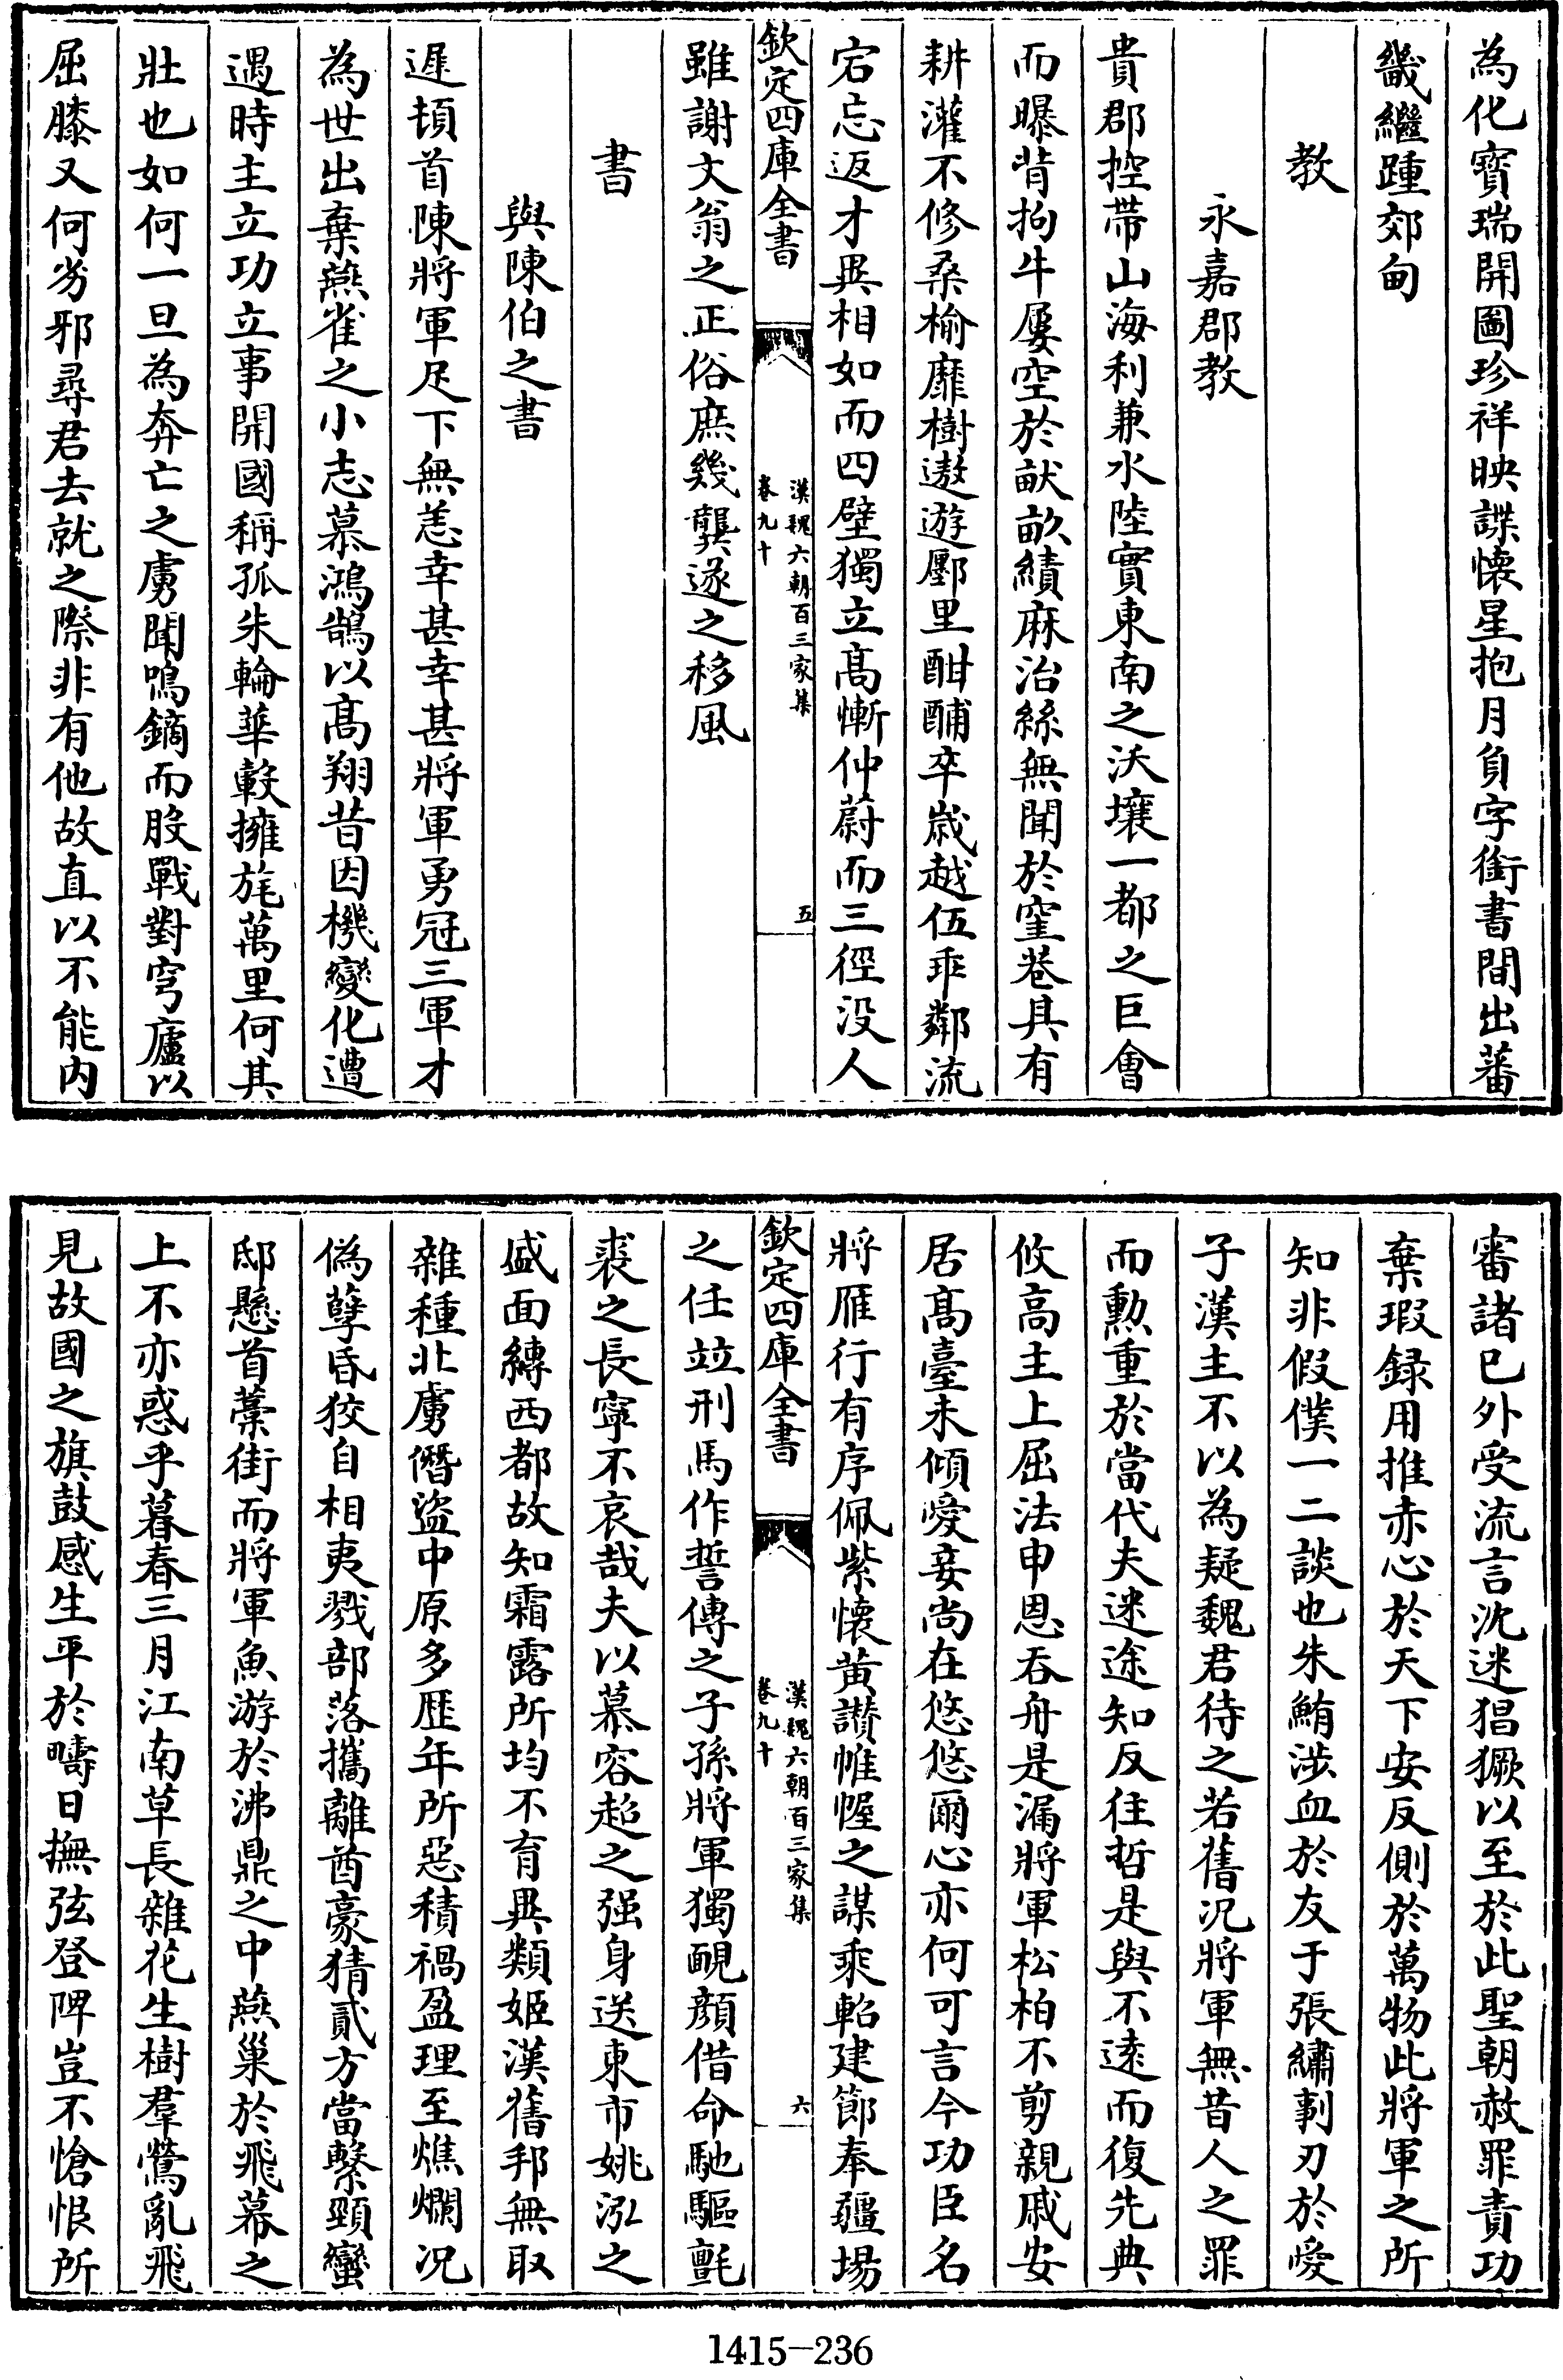 為化寳瑞開圖珍祥映諜懐星抱月負字銜書間出蕃
畿繼踵郊甸
教
永嘉郡教
貴郡控帶山海利兼水陸實東南之沃壤一都之巨會
而曝背拘牛屢空於畎畝績麻治絲無聞於窐巷具有
耕灌不修桑榆靡樹遨遊鄽里酣酺卒歲越伍乖鄰流
宕忘返才異相如而四壁獨立髙慚仲蔚而三徑没人
欽定四庫全書
漢魏六朝百三家集
卷九十
五
雖謝文翁之正俗庶幾龔遂之移風
書
與陳伯之書
遲頓首陳將軍足下無恙幸甚幸甚將軍勇冠三軍才
為世出棄燕雀之小志慕鴻鵠以髙翔昔因機變化遭
遇時主立功立事開國稱孤朱輪華轂擁旄萬里何其
壯也如何一旦為奔亡之虜聞鳴鏑而股戰對穹廬以
屈膝又何劣邪尋君去就之際非有他故直以不能内
審諸已外受流言沈迷猖獗以至於此聖朝赦罪責功
棄瑕録用推赤心於天下安反側於萬物此將軍之所
知非假僕一二談也朱鮪涉血於友于張繡剚刃於愛
子漢主不以為疑魏君待之若舊况將軍無昔人之罪
而勲重於當代夫迷途知反往哲是與不逺而復先典
攸高主上屈法申恩吞舟是漏將軍松柏不剪親戚安
居髙臺未傾愛妾尚在悠悠爾心亦何可言今功臣名
將雁行有序佩紫懐黄讃帷幄之謀乘軺建節奉疆埸
欽定四庫全書
漢魏六朝百三家集
卷九十
六
之任竝刑馬作誓傳之子孫將軍獨靦顔借命馳驅氈
裘之長寧不哀哉夫以慕容超之强身送東市姚泓之
盛面縛西都故知霜露所均不育異類姬漢舊邦無取
雜種北虜僭盜中原多歴年所惡積禍盈理至燋爛况
偽孽昏狡自相夷戮部落攜離酋豪猜貳方當繫頸蠻
邸懸首藁街而將軍魚游於沸鼎之中燕巢於飛幕之
上不亦惑乎暮春三月江南草長雜花生樹羣鶯亂飛
見故國之旗鼓感生平於疇日撫弦登陴豈不愴恨所
1415-236